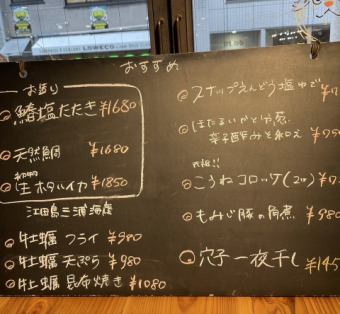 おすすめ
お造り
鰆塩たたき ¥1680
天然鯛 ¥1680
初物
生ホタルイカ ¥1850
江田島三浦海産
牡蠣フライ ¥980
牡蠣天ぷら ¥980
牡蠣昆布焼き ¥1080
スナップえんどう塩ゆで
ほたるいかと分葱
辛子酢みそ和え
こうねコロッケ(2コ)
もみじ豚の角煮 ¥980
穴子一夜干し ¥145
LOWECO